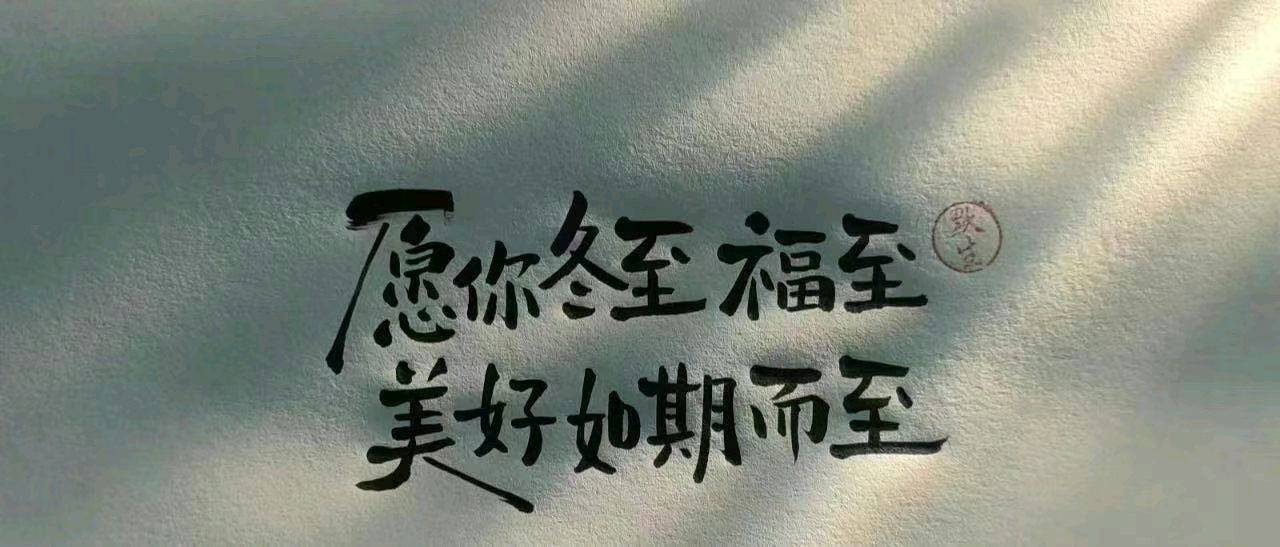 愿你冬至 福至
美好如期而至